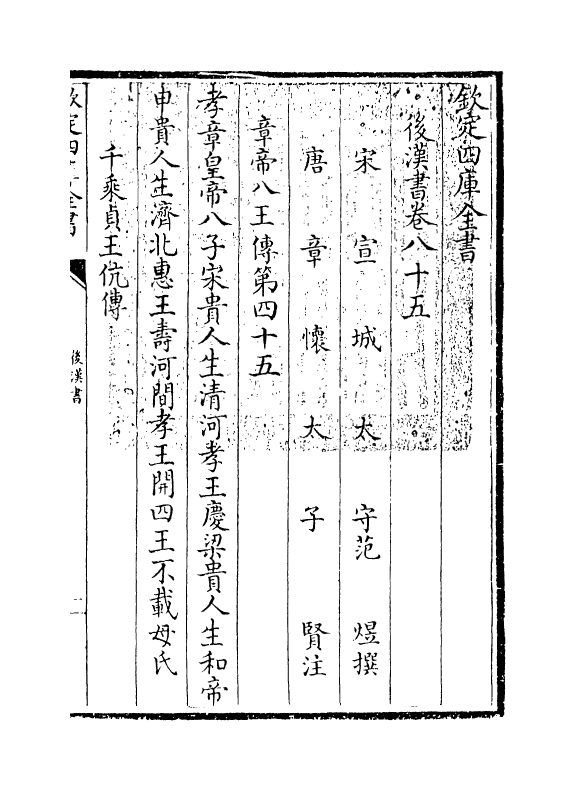 欽定四庫全書
後漢書卷八十五
宋宣城太守范煜撰
唐章懷太子賢注
章帝八王傳第四十五
孝章皇帝八子宋貴人生清河孝王慶梁貴人生和帝
申貴人生濟北惠王壽河間孝王開四王不載母氏
千乘貞王伉傳
欽定四庫全書
後漢書